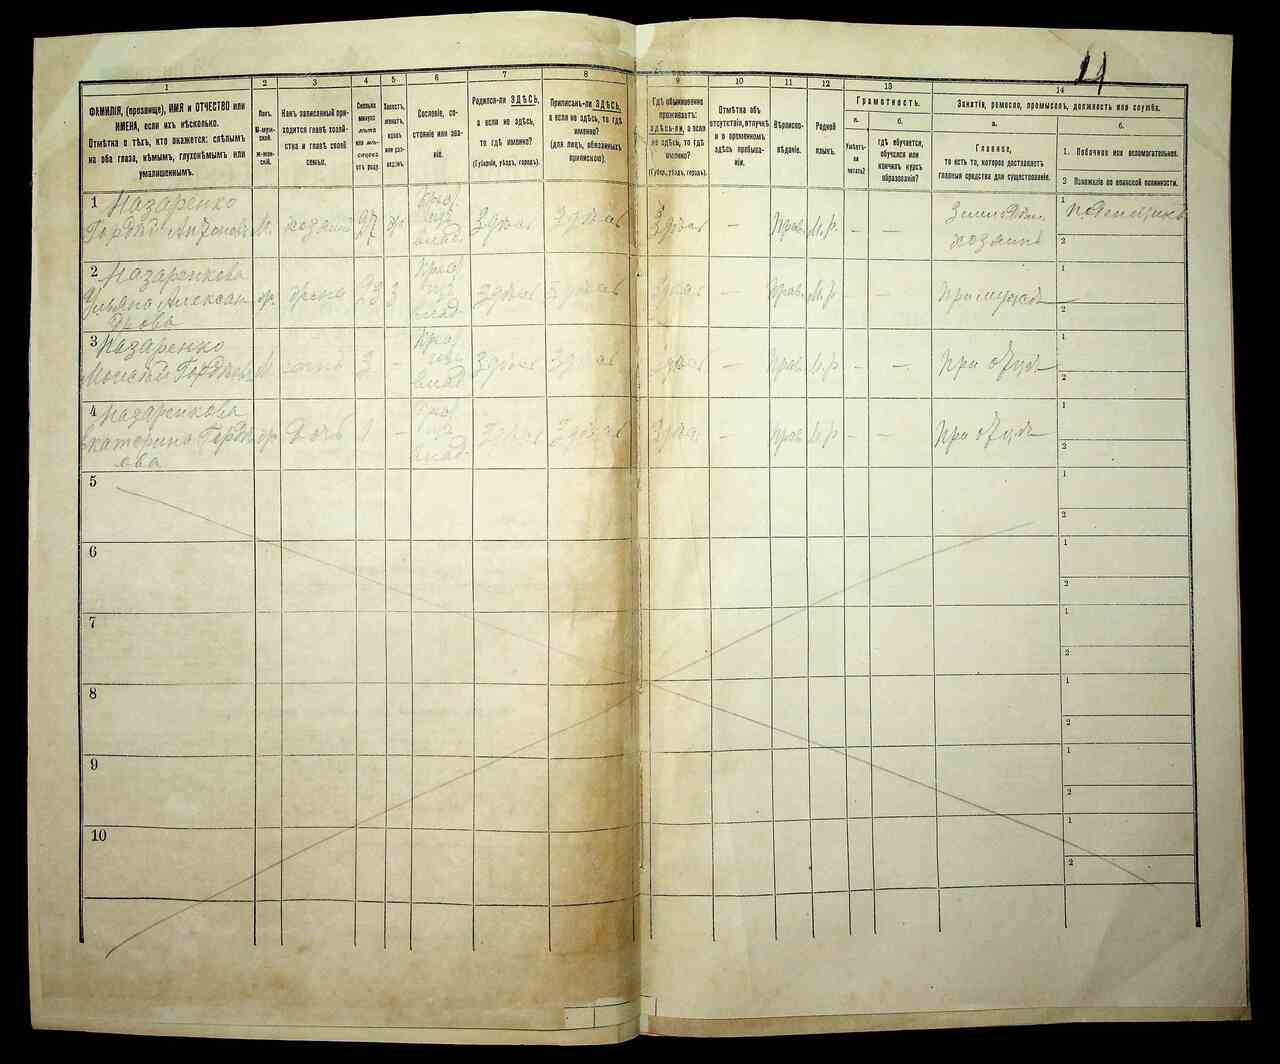 11
1
2
3
4
5
6
7
8
9
10
11
12
13
14
ФАМИЛІЯ, (прозвище), ИМЯ и ОТЧЕСТВО или
ИМЕНА, если ихъ нѣсколько.
Отмѣтка о тѣхъ, кто окажется: слѣпымъ
на оба глаза, нѣмымъ, глухонѣмымъ или
умалишеннымъ.
Полъ.
М-муж-
ской.
Ж-жен-
скій.
Какъ записанный при-
ходится главѣ хозяй-
ства и главѣ своей
семьи.
Сколько
минуло
лѣтъ
или мѣ-
сяцевъ
отъ роду.
Холостъ,
женатъ,
вдовъ
или раз-
веденъ.
Сословіе, со-
стояніе или зва-
ніе.
Родился-ли ЗДѢСЬ,
а если не здѣсь,
то гдѣ именно?
(Губернія, уѣздъ, городъ).
Приписанъ-ли ЗДѢСЬ,
а если не здѣсь, то гдѣ
именно?
(для лицъ, обязанныхъ
припискою).
Гдѣ обыкновенно
проживаетъ:
здѣсь-ли, а если
не здѣсь, то гдѣ
именно?
(Губер., уѣздъ, городъ).
Отмѣтка объ
отсутствіи, отлучкѣ
и о временномъ
здѣсь пребыва-
ніи.
Вѣроиспо-
вѣданіе.
Родной
языкъ.
Грамотность.
а.
Умѣетъ-
ли
читать?
б.
гдѣ обучается,
обучался или
кончилъ курсъ
образованія?
Занятія, ремесло, промыселъ, должность или служба.
а.
Главное,
то есть то, которое доставляетъ
главныя средства для существованія.
б.
1. Побочное или вспомогательное.
2 Положеніе по воинской повинности.
1 Назаренко
Гордѣй М. хозяинъ 27 Здѣсь Здѣсь Здѣсь — Прав. М.р. — — хозяинъ
1
2
2 Назаренкова
Ульяна Александрова ж. жена 23 З Здѣсь Здѣсь Здѣсь — Прав. М.р. — — При мужѣ
1
2
3 Назаренко
М. сынъ 3 — Здѣсь Здѣсь Здѣсь — Прав. М.р. — — При отцѣ
1
2
4 Назаренкова
Екатерина Гордѣева ж. дочь 1 — Здѣсь Здѣсь Здѣсь — Прав. М.р. — — При отцѣ
1
2
5
1
2
6
1
2
7
1
2
8
1
2
9
1
2
10
1
2